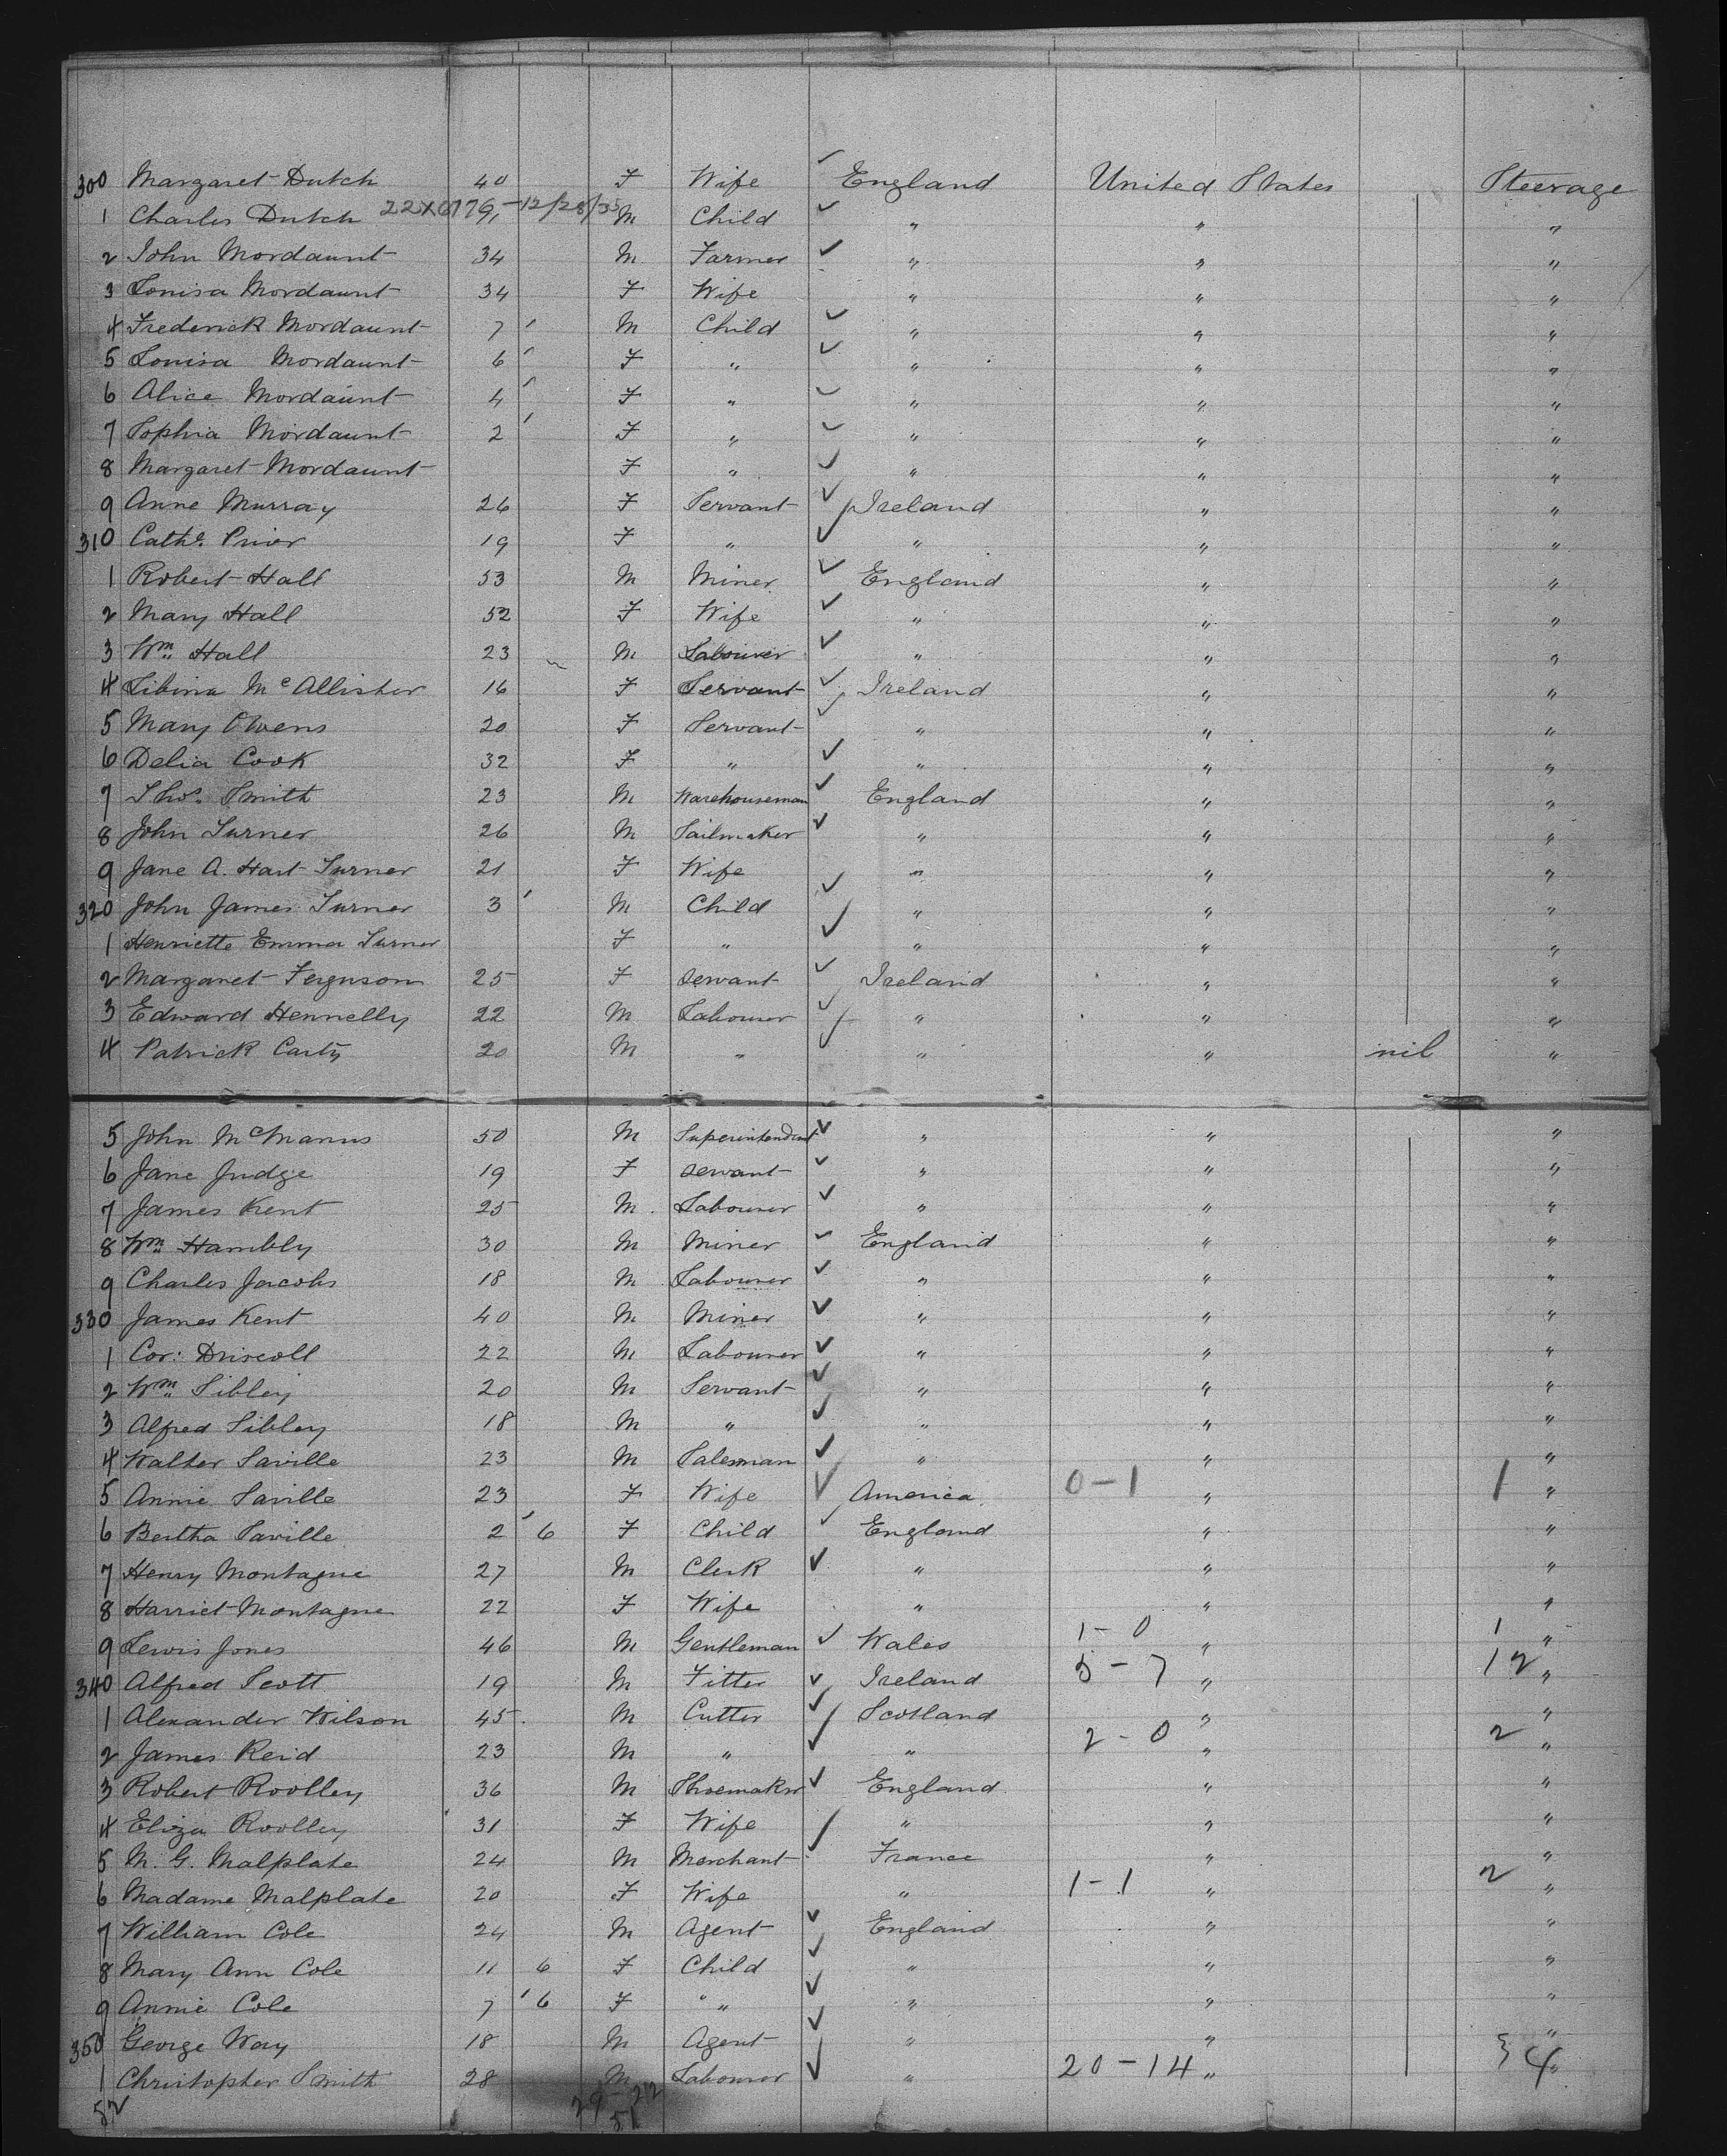 300 Margaret Dutch 40 F Wife England United States Steerage
1 Charles Dutch 22X0179-12/28/35 M Child " " "
2 John Mordaunt 34 M Farmer " " "
3 Louisa Mordaunt 34 F Wife " " "
4 Frederick Mordaunt 7 M Child " " "
5 Louisa Mordaunt 6 F " " " "
6 Alice Mordaunt 4 F " " " "
7 Sophia Mordaunt 2 F " " " "
8 Margaret Mordaunt F " " " "
9 Anne Murray 26 F Servant Ireland " "
310 Cathe. Prior 19 F " " " "
1 Robert Hall 53 M Miner England " "
2 Mary Hall 52 F Wife " " "
3 Wm Hall 23 M Labourer " " "
4 Libina McAllister 16 F Servant Ireland " "
5 Mary Owens 20 F Servant " " "
6 Delia Cook 32 F " " " "
7 Thos. Smith 23 M Warehouseman England " "
8 John Turner 26 M Sailmaker " " "
9 Jane A. Hart Turner 21 F Wife " " "
320 John James Turner 3 M Child " " "
1 Henriette Emma Turner F " " " "
2 Margaret Ferguson 25 F Servant Ireland " "
3 Edward Hennelly 22 M Labourer " " "
4 Patrick Carty 20 M " " " nil "
5 John McManus 50 M Superintendent " " "
6 Jane Judge 19 F Servant " " "
7 James Kent 25 M Labourer " " "
8 Wm Hambly 30 M Miner England " "
9 Charles Jacobs 18 M Labourer " " "
330 James Kent 40 M Miner " " "
1 Cor: Driscoll 22 M Labourer " " "
2 Wm Sibley 20 M Servant " " "
3 Alfred Sibley 18 M " " " "
4 Walter Saville 23 M Salesman " " "
5 Annie Saville 23 F Wife America 0-1 " 1 "
6 Bertha Saville 2 6 F Child England " "
7 Henry Montague 27 M Clerk " " "
8 Harriet Montague 22 F Wife " " "
9 Lewis Jones 46 M Gentleman Wales 1-0 " 1 "
340 Alfred Scott 19 M Fitter Ireland 5-7 " 12 "
1 Alexander Wilson 45 M Cutter Scotland " "
2 James Reid 23 M " " 2-0 " 2 "
3 Robert Roolley 36 M Shoemaker England " "
4 Eliza Roolley 31 F Wife " " "
5 M. G. Malplate 24 M Merchant France " "
6 Madame Malplate 20 F Wife " 1-1 " 2 "
7 William Cole 24 M Agent England " "
8 Mary Ann Cole 11 6 F Child " " "
9 Annie Cole 7 6 F " " " " "
350 George Way 18 M Agent " " "
1 Christopher Smith 28 M Labourer " 20-14 " 34 "
52 29-22
51